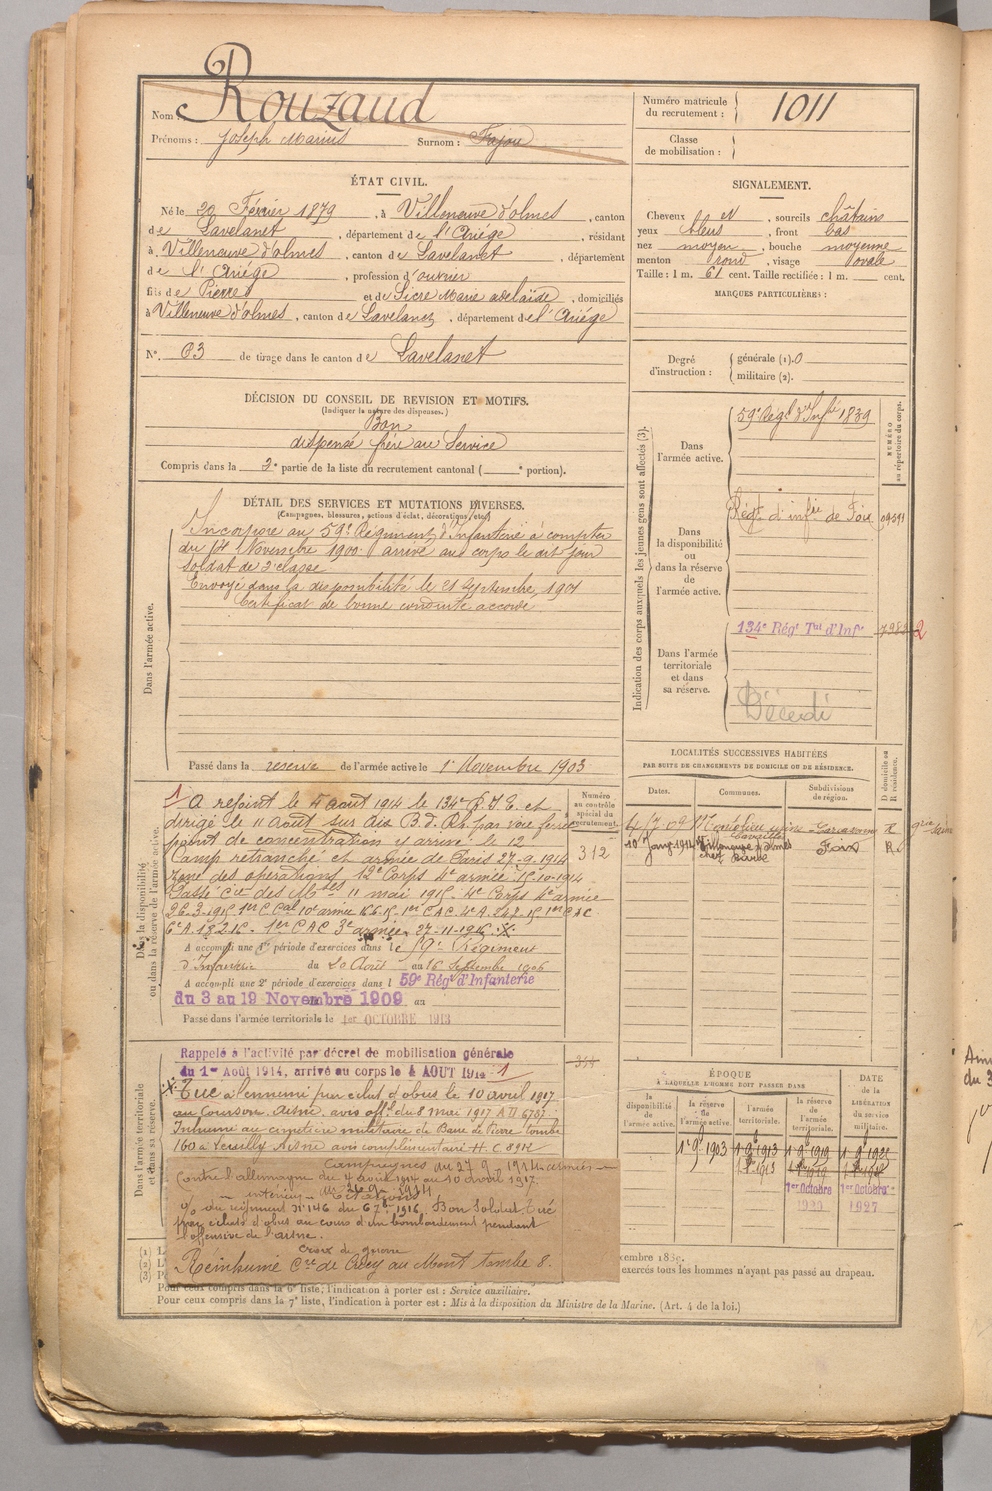 Nom Rouzaud
Prénoms : Joseph Marius Surnom : Fajou
Numéro matricule du recrutement : 1011
Classe de mobilisation :
ÉTAT CIVIL.
Né le 20 Février 1879, à Villeneuve d'olmes, canton
de Lavelanet, département de l'Ariége, résidant
à Villeneuve d'olmes, canton de Lavelanet, département
de l'Ariége, profession d'ouvrier
fils de Pierre et de Sicre Marie adelaïde, domiciliés
à Villeneuve d'olmes, canton de Lavelanet, département de l'Ariége
N°. 63 de tirage dans le canton de Lavelanet
SIGNALEMENT.
Cheveux et, sourcils châtains
yeux bleus, front bas
nez moyen, bouche moyenne
menton rond, visage ovale
Taille : 1 m. 61 cent. Taille rectifiée : 1 m. cent.
MARQUES PARTICULIÈRES :
Degré d'instruction : générale (1). 0
militaire (2).
DÉCISION DU CONSEIL DE REVISION ET MOTIFS.
(Indiquer la nature des dispenses.)
Bon
dispensé frère au Service
Compris dans la 2e partie de la liste du recrutement cantonal ( e portion).
DÉTAIL DES SERVICES ET MUTATIONS DIVERSES.
(Campagnes, blessures, actions d'éclat, décorations, etc.)
Dans l'armée active.
Incorporé au 59e Régiment d'Infanterie à compter
du 14 Novembre 1900. arrivé au corps le dit jour
soldat de 2e classe
Envoyé dans la disponibilité le 21 Septembre 1901
Certificat de bonne conduite accordé
Passé dans la réserve de l'armée active le 1er Novembre 1903
Indication des corps auxquels les jeunes gens sont affectés (3).
NUMÉRO au répertoire du corps.
Dans l'armée active.
59e Régt d'Infie 1839
Dans la disponibilité ou dans la réserve de l'armée active.
Régt d'infie de Foix
Dans l'armée territoriale et dans sa réserve.
134e Régt Tal d'Infie
Décédé
LOCALITÉS SUCCESSIVES HABITÉES
PAR SUITE DE CHANGEMENTS DE DOMICILE OU DE RÉSIDENCE.
Dates. Communes. Subdivisions de région. D domicile ou R résidence.
10 janv. 1914 Villeneuve d'olmes Foix R.
Dans la disponibilité ou dans la réserve de l'armée active.
Numéro au contrôle spécial du recrutement.
312
1 A rejoint le 4 août 1914 le 134e R.I.T. et
dirigé le 11 août sur dis. B. d. Rh. par voie ferrée
point de concentration y arrive le 12
Camp retranché et armée de Paris 27-9-1914
zone des opérations 12e Corps 4e armée 15-10-1914
Passé Cie des Mlles 11 mai 1915 - 4e Corps 4e armée
1er CAC 3e armée 27-11-1916 ·X·
A accompli une 1re période d'exercices dans le 59e Régiment
d'Infanterie du 20 Août au 16 Septembre 1906
A accompli une 2e période d'exercices dans l 59e Régt d'Infanterie
du 3 au 19 Novembre 1909 au
Passé dans l'armée territoriale le 1er OCTOBRE 1913
Dans l'armée territoriale et dans sa réserve.
Rappelé à l'activité par décret de mobilisation générale
du 1er Août 1914, arrivé au corps le 4 AOUT 1914 1
·X· Tué à l'ennemi par éclat d'obus le 10 avril 1917
au Courson Aisne. avis offel du 8 mai 1917 AII 6707.
Inhumé au cimetière militaire de Banc de Pierre tombe
160 à Leuilly Aisne avis complémentaire H.C. 8912
Campagnes du 27 9 1914 armées
Contre l'allemagne du 4 août 1914 au 10 avril 1917.
intérieur
O/ du régiment N° 146 du 6 7bre 1916. Bon Soldat. Tué
par éclats d'obus au cours d'un bombardement pendant
l'offensive de l'aisne.
Croix de guerre
Réinhumé Cre de Crecy au Mont tombe 8.
ÉPOQUE
À LAQUELLE L'HOMME DOIT PASSER DANS
la disponibilité de l'armée active. la réserve de l'armée active. l'armée territoriale. la réserve de l'armée territoriale.
DATE de la LIBÉRATION du service militaire.
1 9 1903 1 9 1913 1 9 1919
1er Octobre 1er Octobre
1920 1927
exercés tous les hommes n'ayant pas passé au drapeau.
Pour ceux compris dans la 6e liste, l'indication à porter est : Service auxiliaire.
Pour ceux compris dans la 7e liste, l'indication à porter est : Mis à la disposition du Ministre de la Marine. (Art. 4 de la loi.)